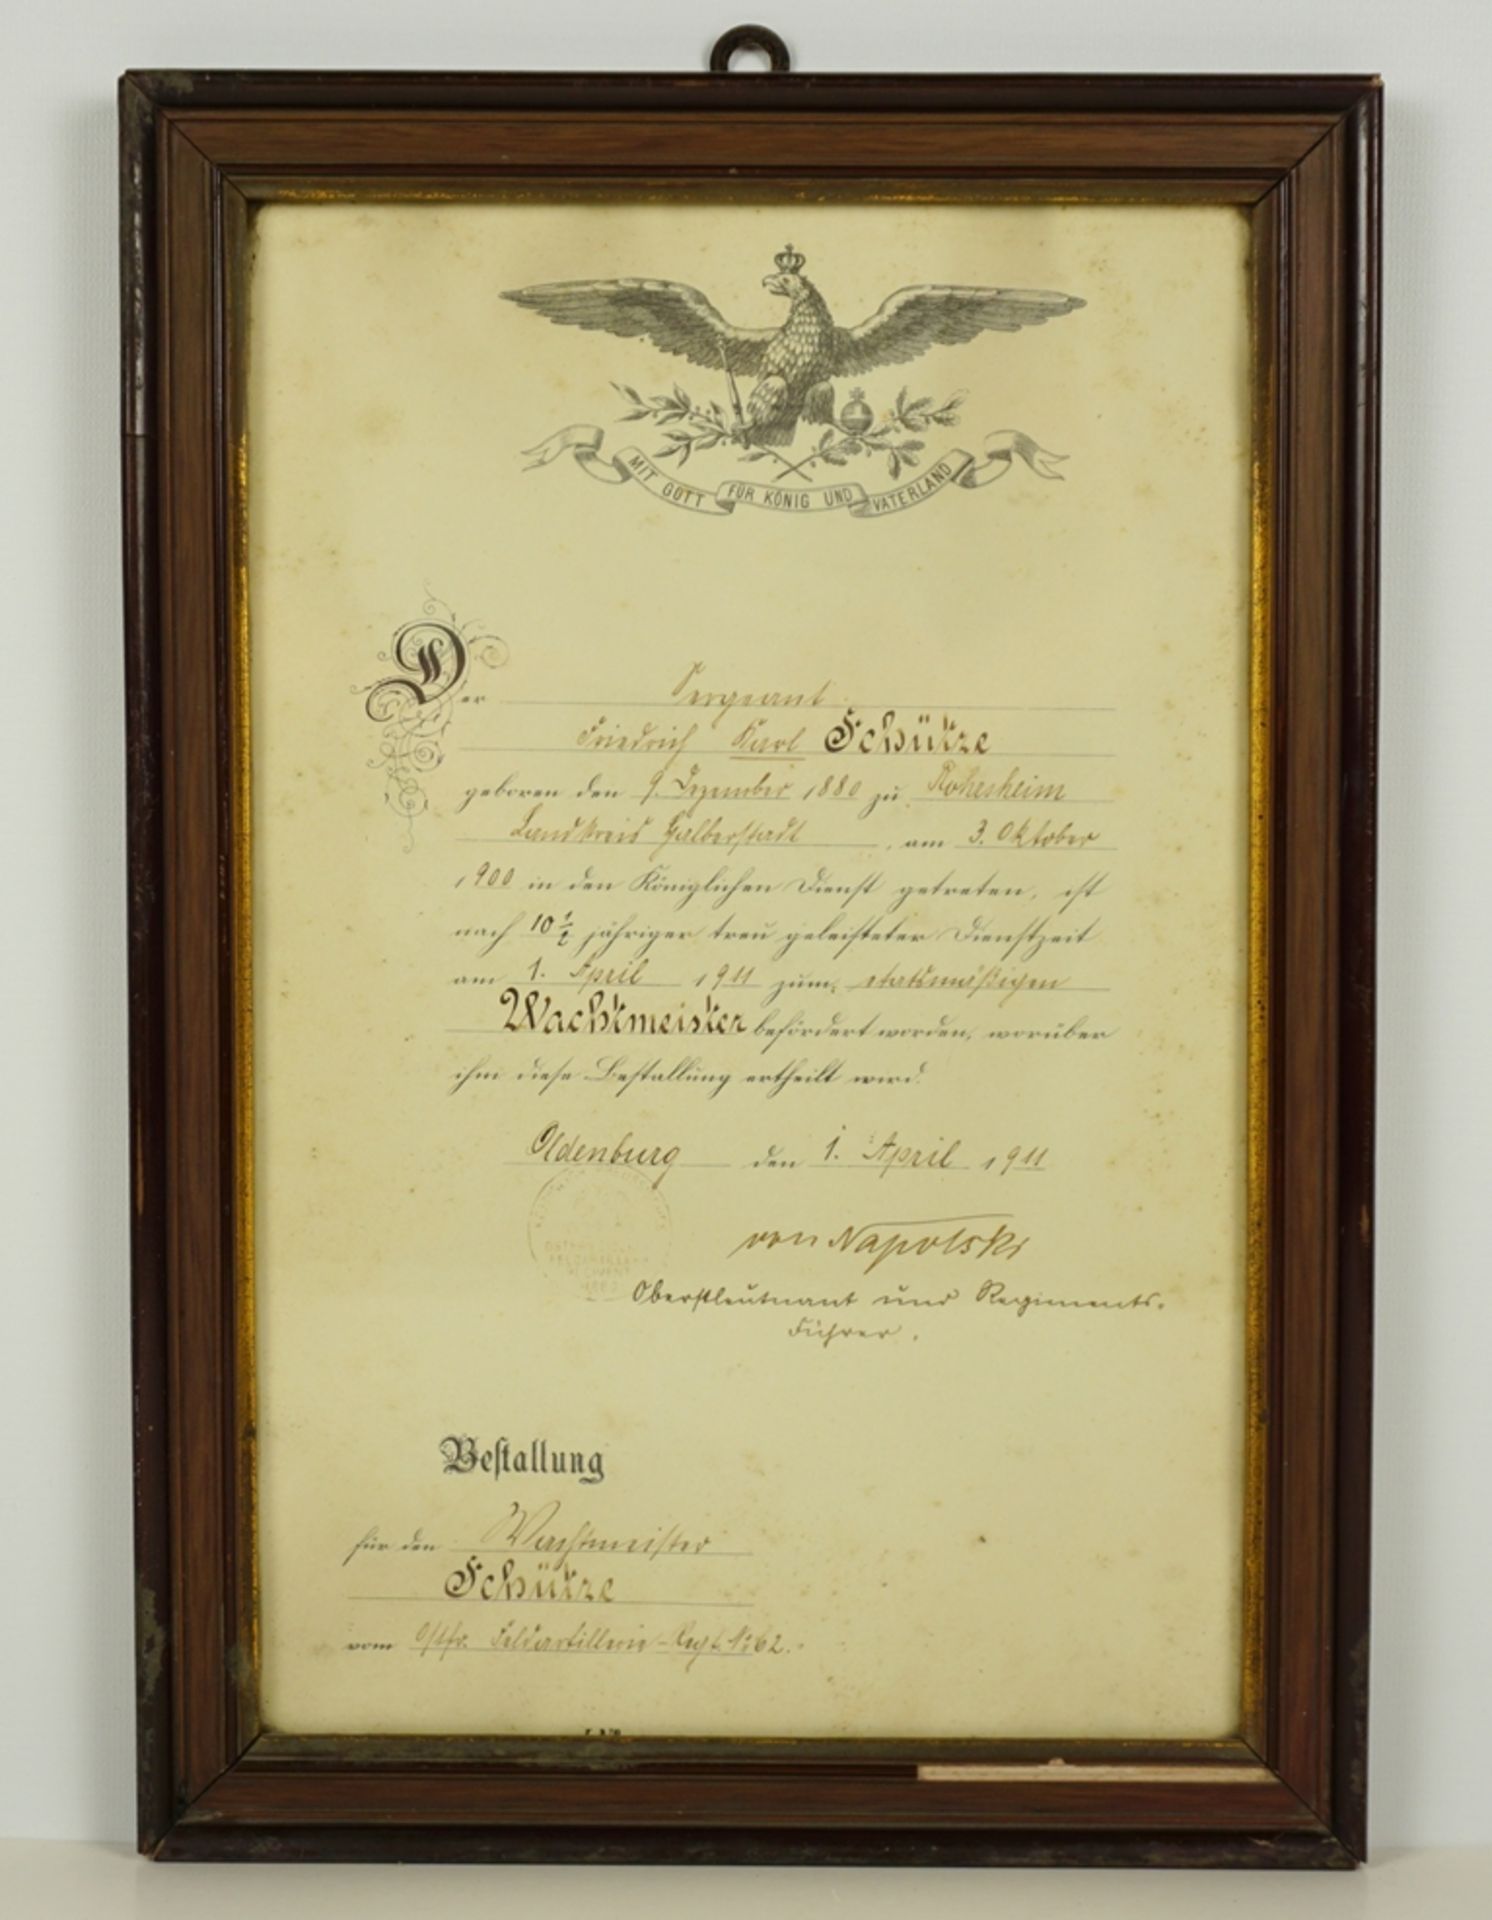 MIT GOTT FÜR KÖNIG UND VATERLAND
Der Sergeant
Friedrich Karl Schütze
geboren den 9. Dezember 1880 zu Rohrsheim
Landkreis Halberstadt, am 3. Oktober
1900 in den Königlichen Dienst getreten, ist
nach 10 1/2 jähriger treu geleisteter Dienstzeit
am 1. April 1911 zum etatsmäßigen
Wachtmeister befördert worden, worüber
ihm diese Bestallung ertheilt wird.
Oldenburg den 1. April 1911
von Napolski
Oberstleutnant und Regiments-
Führer.
Bestallung
für den Wachtmeister
Schütze
vom Ostfr. Feldartillerie-Regt. No 62.